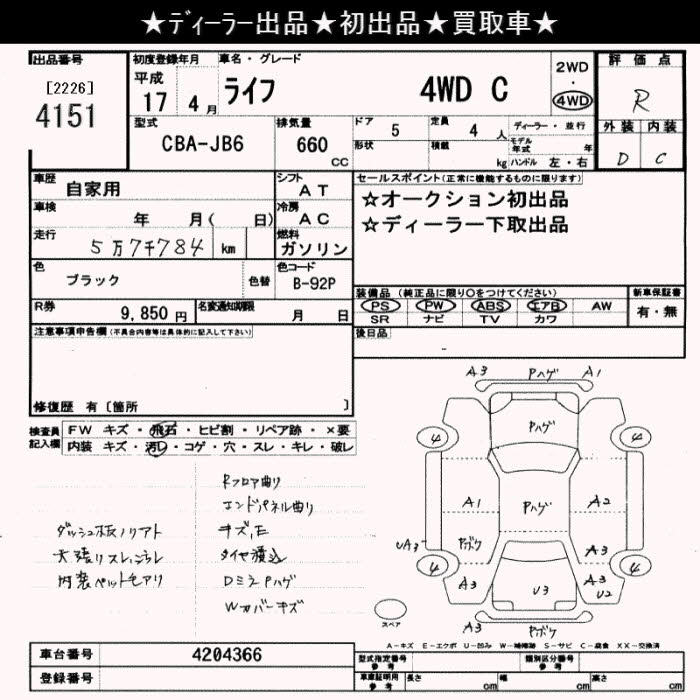 ★ﾃﾞｨｰﾗｰ出品★初出品★買取車★
出品番号
[2226]
4151
初度登録年月
平成
17 4月
車名・グレード
ライフ 4WD C
2WD
・
4WD
評価点
R
外装 内装
D C
型式
CBA-JB6
排気量
660
CC
ドア
5
定員
4 人
ディーラー・並行
形状
積載
kg
モデル年式 年
ハンドル 左・右
車歴
自家用
シフト
AT
車検
年 月( 日)
冷房
AC
走行
5万7千784 km
燃料
ガソリン
色
ブラック
色替
色コード
B-92P
R券
9,850円
名変通知期限
月 日
セールスポイント(正常に機能するものに限ります)
☆オークション初出品
☆ディーラー下取出品
装備品(純正品に限り○をつけてください)
PS PW ABS エアB AW
SR ナビ TV カワ
新車保証書
有・無
後日品
注意事項申告欄(不具合内容等は具体的に記入して下さい)
修復歴 有〔箇所 〕
検査員
記入欄
FW キズ・飛石・ヒビ割・リペア跡・×要
内装 キズ・汚レ・コゲ・穴・スレ・キレ・破レ
Rフロア曲り
エンドパネル曲り
ダッシュ板ノリアト
キズ,E
天張りスレ,シラレ
タイヤ積込
内装ペット毛アリ
DミラPハゲ
Wカバーキズ
A3 Pハゲ A1
4 Pハゲ 4
A1 Pハゲ A2
UA3 Pボケ A3
4 4
A3 U3 A3
U2
A3 Pボケ
スペア
A-キズ E-エクボ U-凹み W-補修跡 S-サビ C-腐食 XX-交換済
車台番号
4204366
登録番号
型式指定番号
参考
類別区分番号
参考
車庫証明用
参考
長さ cm
幅 cm
高さ cm